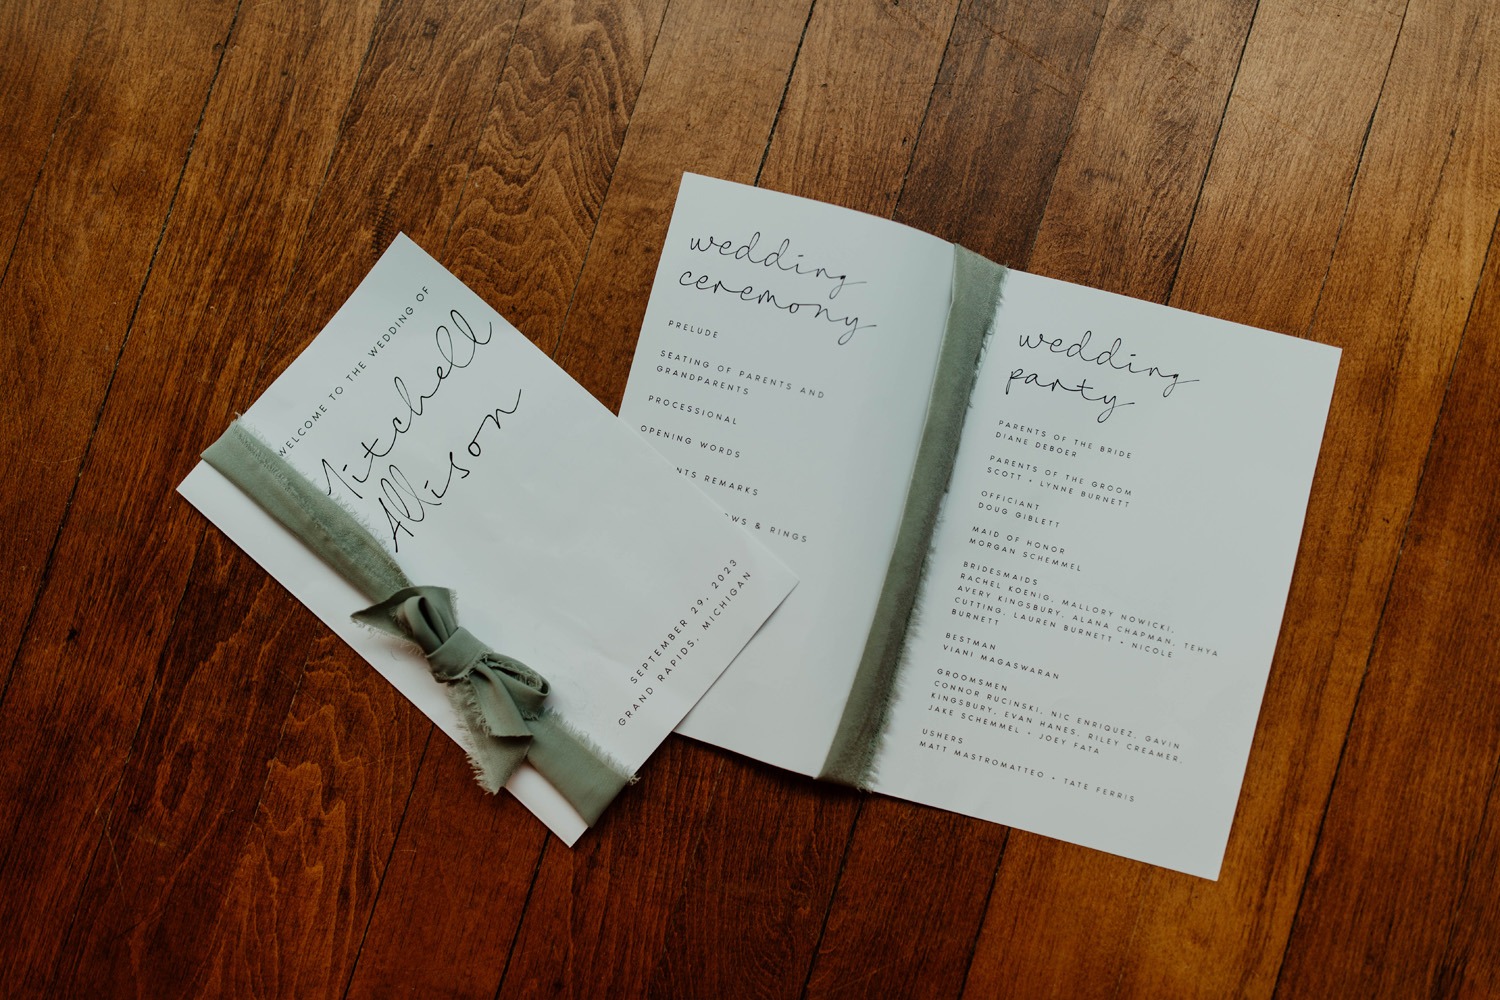 WELCOME TO THE WEDDING OF
Mitchell
Allison
SEPTEMBER 29, 2023
GRAND RAPIDS, MICHIGAN
wedding
ceremony
PRELUDE
SEATING OF PARENTS AND
GRANDPARENTS
PROCESSIONAL
OPENING WORDS
NTS REMARKS
OWS & RINGS
wedding
party
PARENTS OF THE BRIDE
DIANE DEBOER
PARENTS OF THE GROOM
SCOTT + LYNNE BURNETT
OFFICIANT
DOUG GIBLETT
MAID OF HONOR
MORGAN SCHEMMEL
BRIDESMAIDS
RACHEL KOENIG, MALLORY NOWICKI,
AVERY KINGSBURY, ALANA CHAPMAN, TEHYA
CUTTING, LAUREN BURNETT + NICOLE
BURNETT
BESTMAN
VIANI MAGASWARAN
GROOMSMEN
CONNOR RUCINSKI, NIC ENRIQUEZ, GAVIN
KINGSBURY, EVAN HANES, RILEY CREAMER,
JAKE SCHEMMEL + JOEY FATA
USHERS
MATT MASTROMATTEO + TATE FERRIS